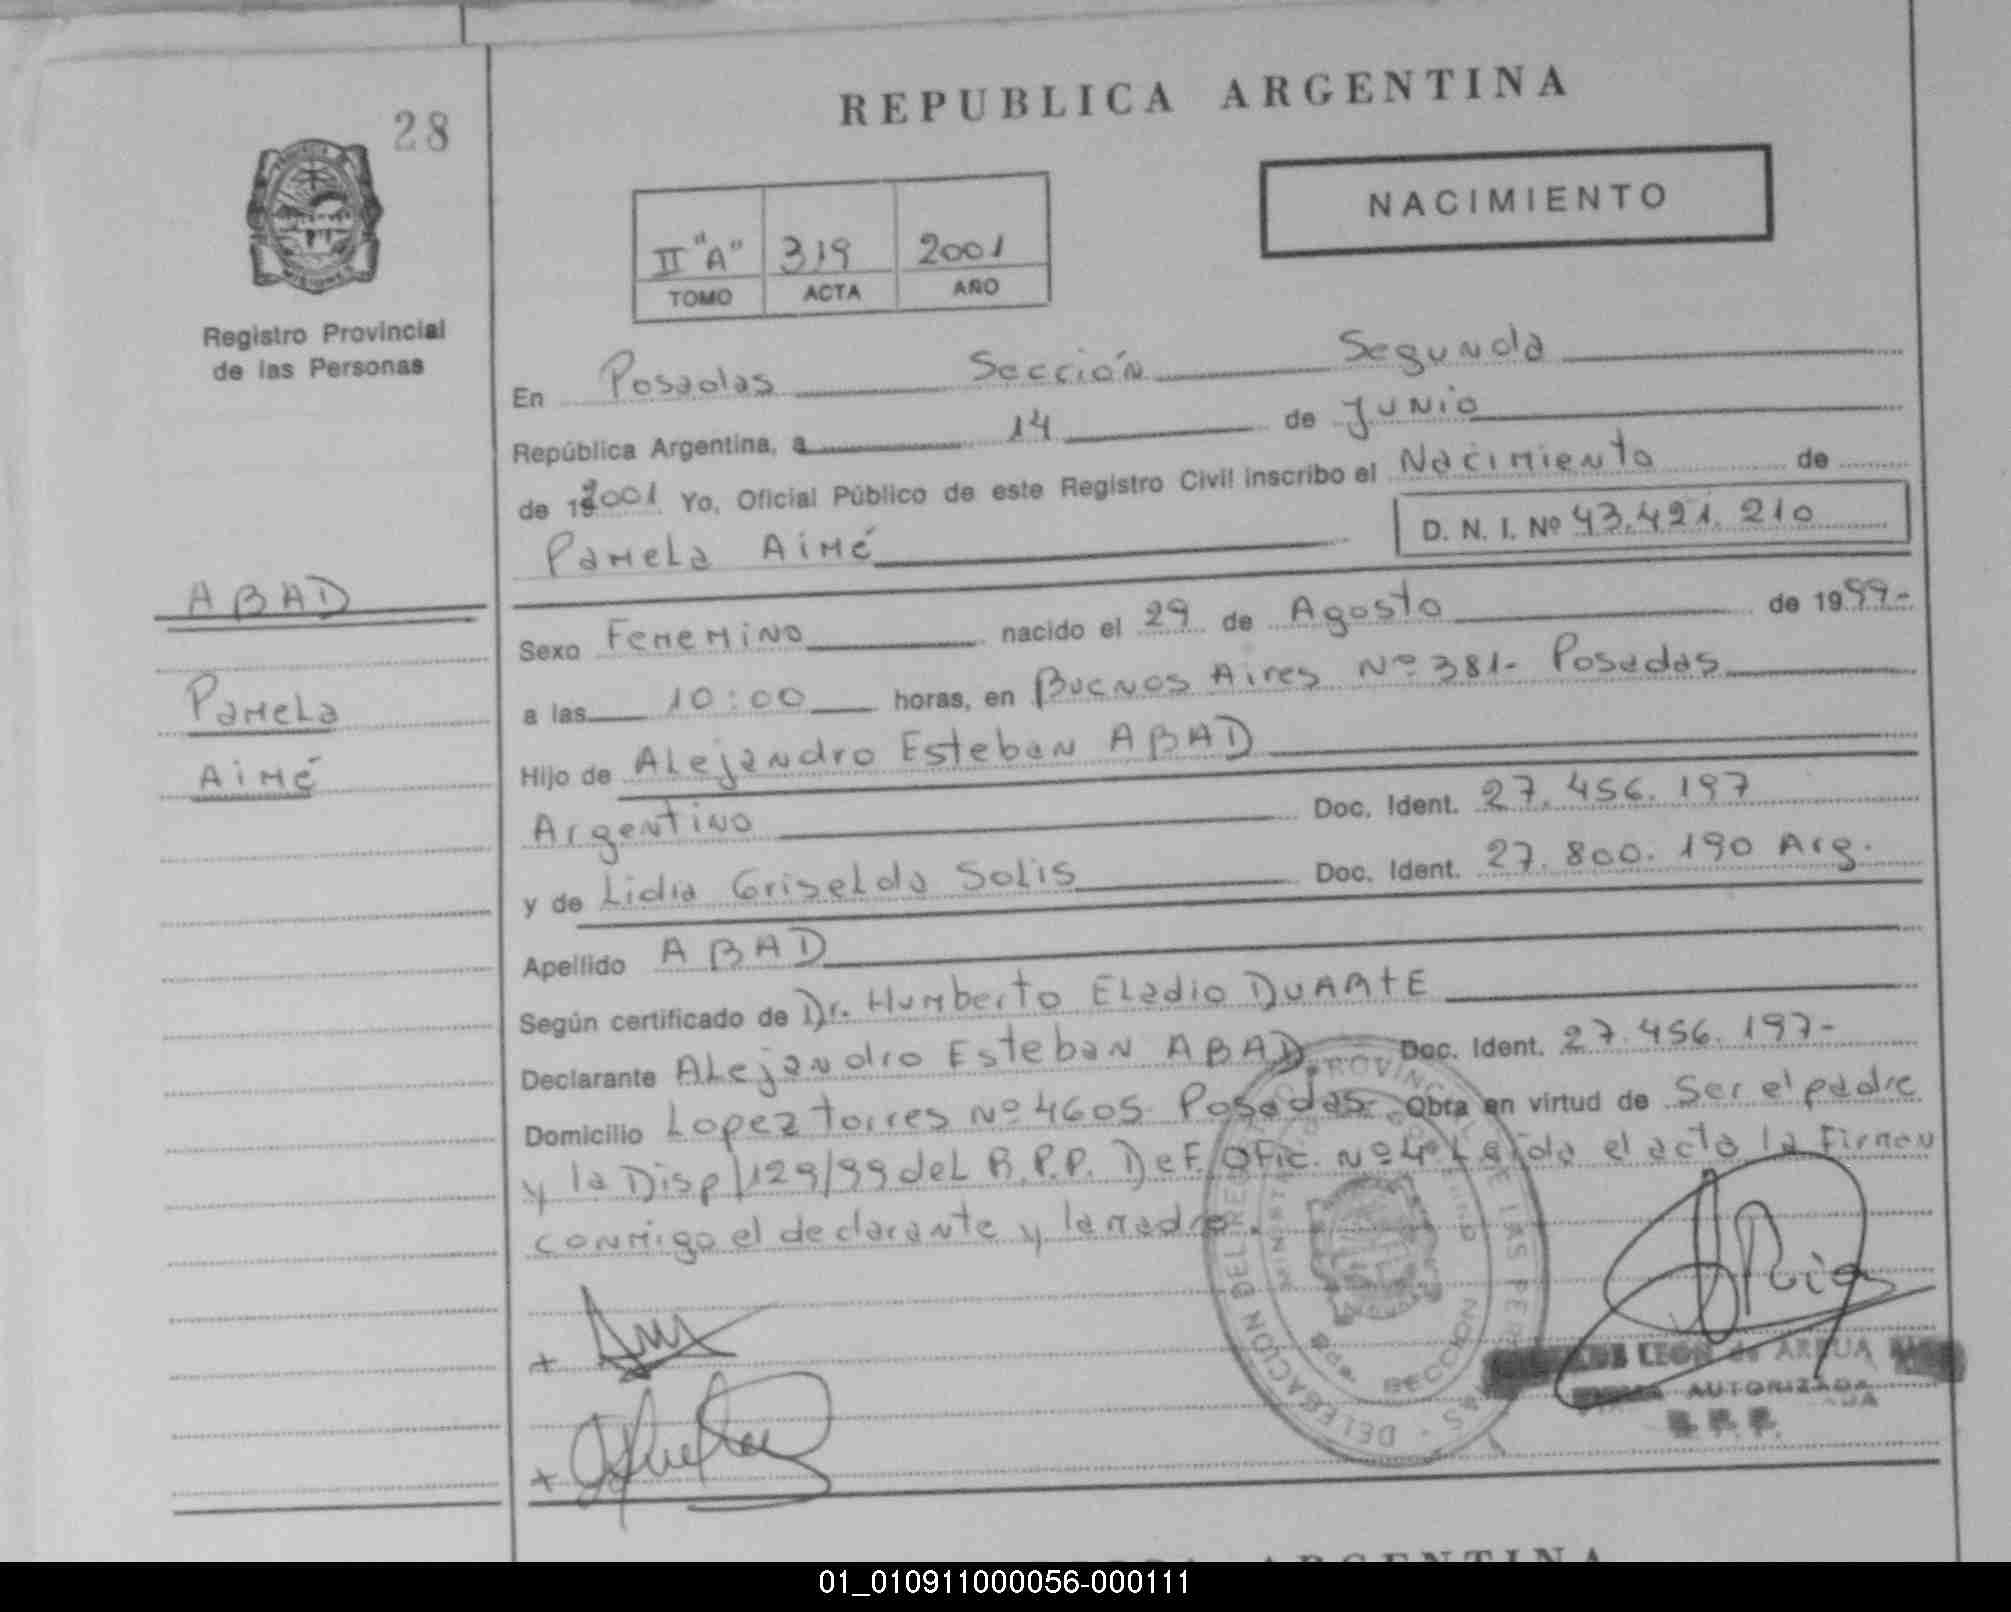 28
REPUBLICA ARGENTINA
NACIMIENTO
II "A" 319 2001
TOMO ACTA AÑO
Registro Provincial
de las Personas
En Posadas Sección Segunda
República Argentina, a 14 de Junio
de 192001 Yo, Oficial Público de este Registro Civil inscribo el Nacimiento de
Pamela Aimé D. N. I. Nº 43.421.210
ABAD
Pamela
Aimé
Sexo Femenino nacido el 29 de Agosto de 1999-
a las 10:00 horas, en Buenos Aires Nº 381- Posadas
Hijo de Alejandro Esteban ABAD
Argentino Doc. Ident. 27.456.197
y de Lidia Griselda Solis Doc. Ident. 27.800.190 Arg.
Apellido ABAD
Según certificado de Dr. Humberto Eladio DUARTE
Declarante Alejandro Esteban ABAD Doc. Ident. 27.456.197-
Domicilio Lopez torres Nº 4605- Posadas- Obra en virtud de Ser el padre
y la Disp/129/99 del R.P.P. Def. Ofic. Nº 4º Leída el acta la Firman
conmigo el declarante y la madre.
DELEGACION DEL REGISTRO PROVINCIAL DE LAS PERSONAS
MINISTERIO DE GOBIERNO
SECCION
LEON de ARRUA
FIRMA AUTORIZADA
R.P.P.
REPUBLICA ARGENTINA
01_010911000056-000111